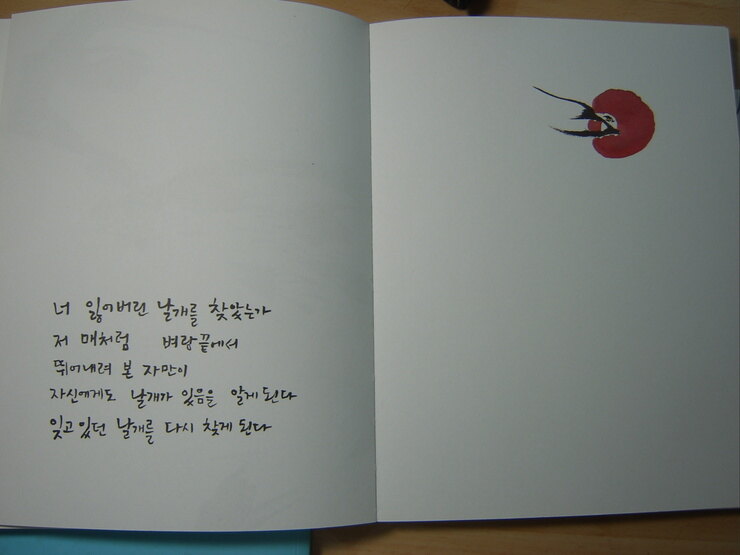 너 잃어버린 날개를 찾았는가
저 매처럼 벼랑끝에서
뛰어내려 본 자만이
자신에게도 날개가 있음을 알게 된다
잊고 있던 날개를 다시 찾게 된다